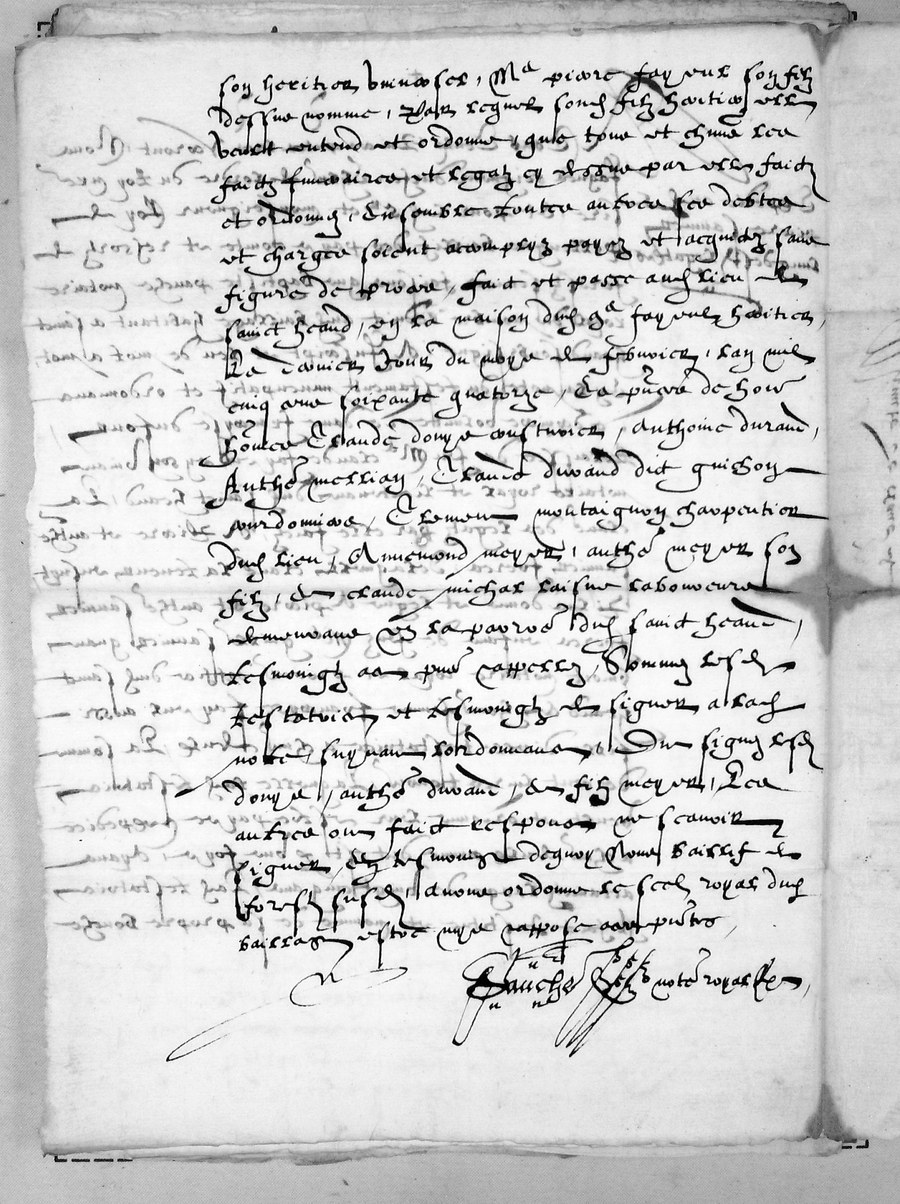 son heritier universel, Me pierre fayeul son filz
dessus nomme, Par lequel sond filz heritier elle
veult entend et ordonne, que tous et chūns les
faictz funeraires et legatz cy dessus par elle faictz
et ordonnez, Ensemble toutes aultres ses debtes
et charges soient accomplyz payez et acquictez sans
figure de proces, faict et passe aud lieu de
sainct heand, en la maison dud Me fayeul heritier,
Le dernier Jour du moys de febvrier, lan mil
cinq cens soixante quatorze, Es pn̄ces de hon̄e
hom̄e Claude donys cousturier, anthoine durand,
Anthe mellian, Claude durand dit guisson
courdonniers, Clement montaignon charpentier
dud lieu, Annemond meyer, anthe meyer son
filz, et claude michal laisne laboureurs
demeurans en la parroe dud sainct heand,
tesmoingtz ad ce pn̄s appellez, Sommez lesd
testatrice et tesmoingtz de signer a lad
note suyvant lordonnance, Ont signe lesd
donys, anthe durand, et filz meyer, Les
aultres ont faict response ne scavoir
signer, En tesmoing dequoy Nous baillif de
forestz susd, avons ordonne le scel royal dud
bailliage estre mys et appose a ces pn̄tes,
notre royal